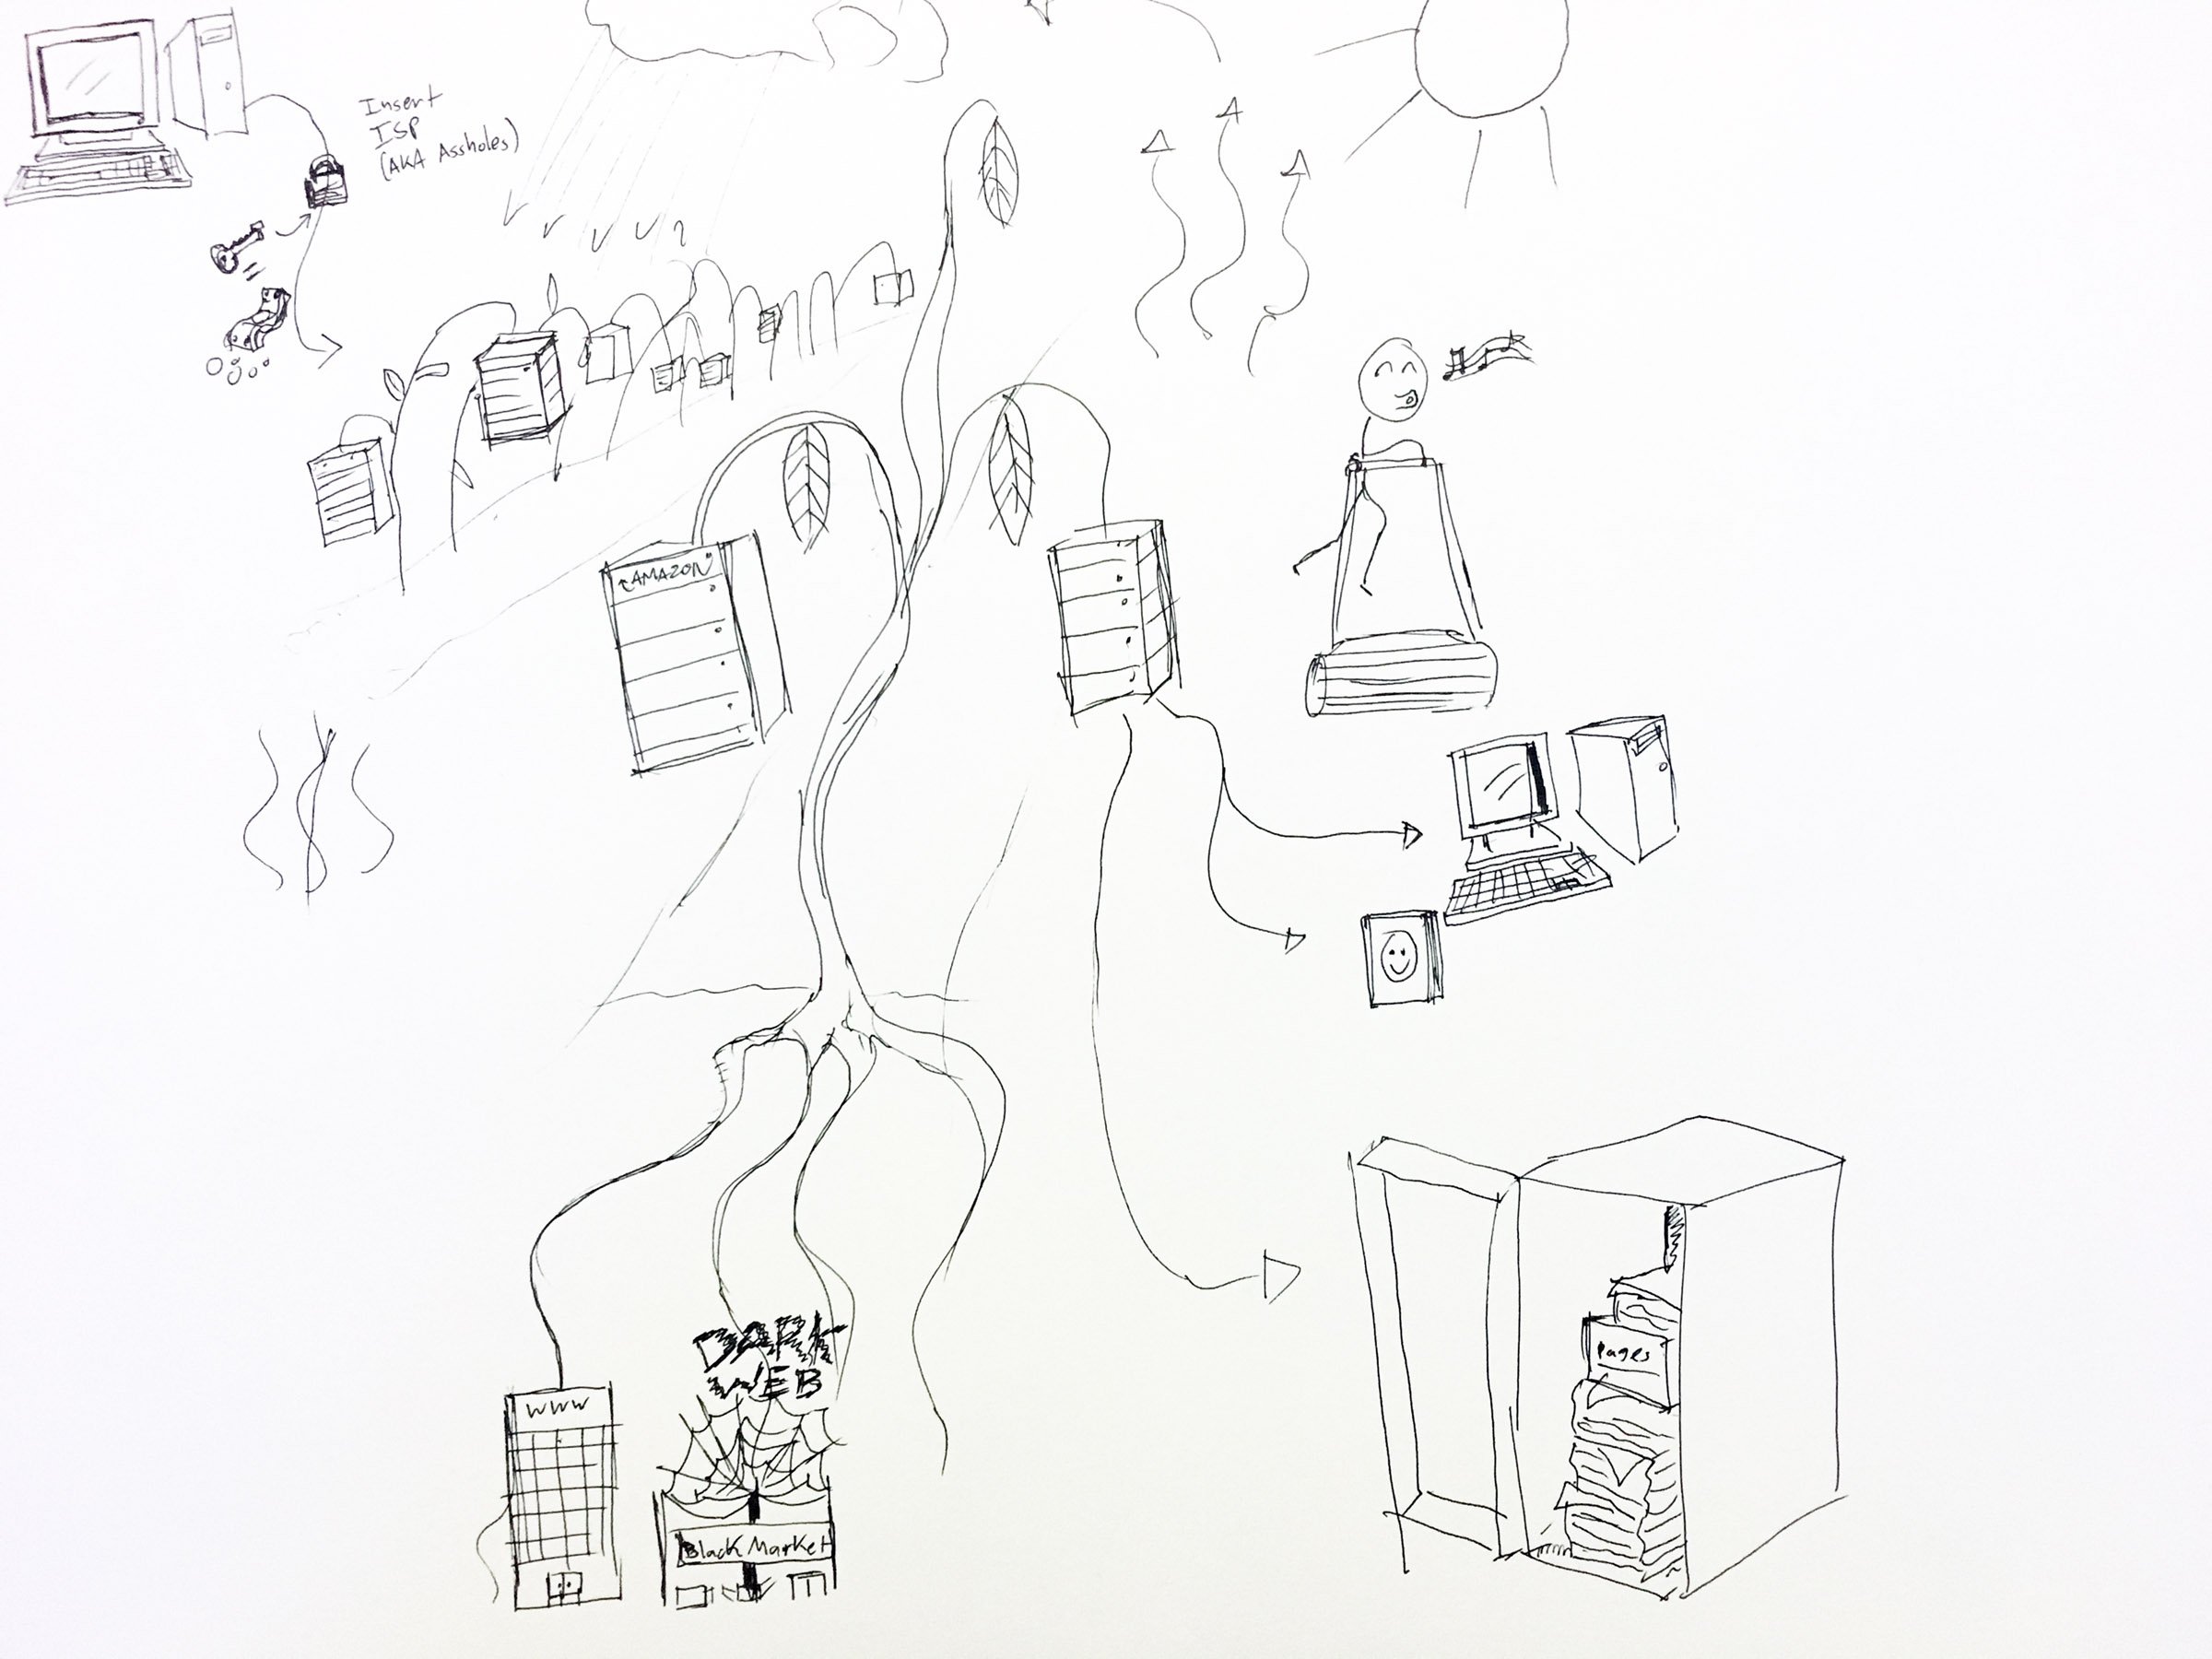 Insert
ISP
(AKA Assholes)
AMAZON
DARK
WEB
WWW
Black Market
Pages